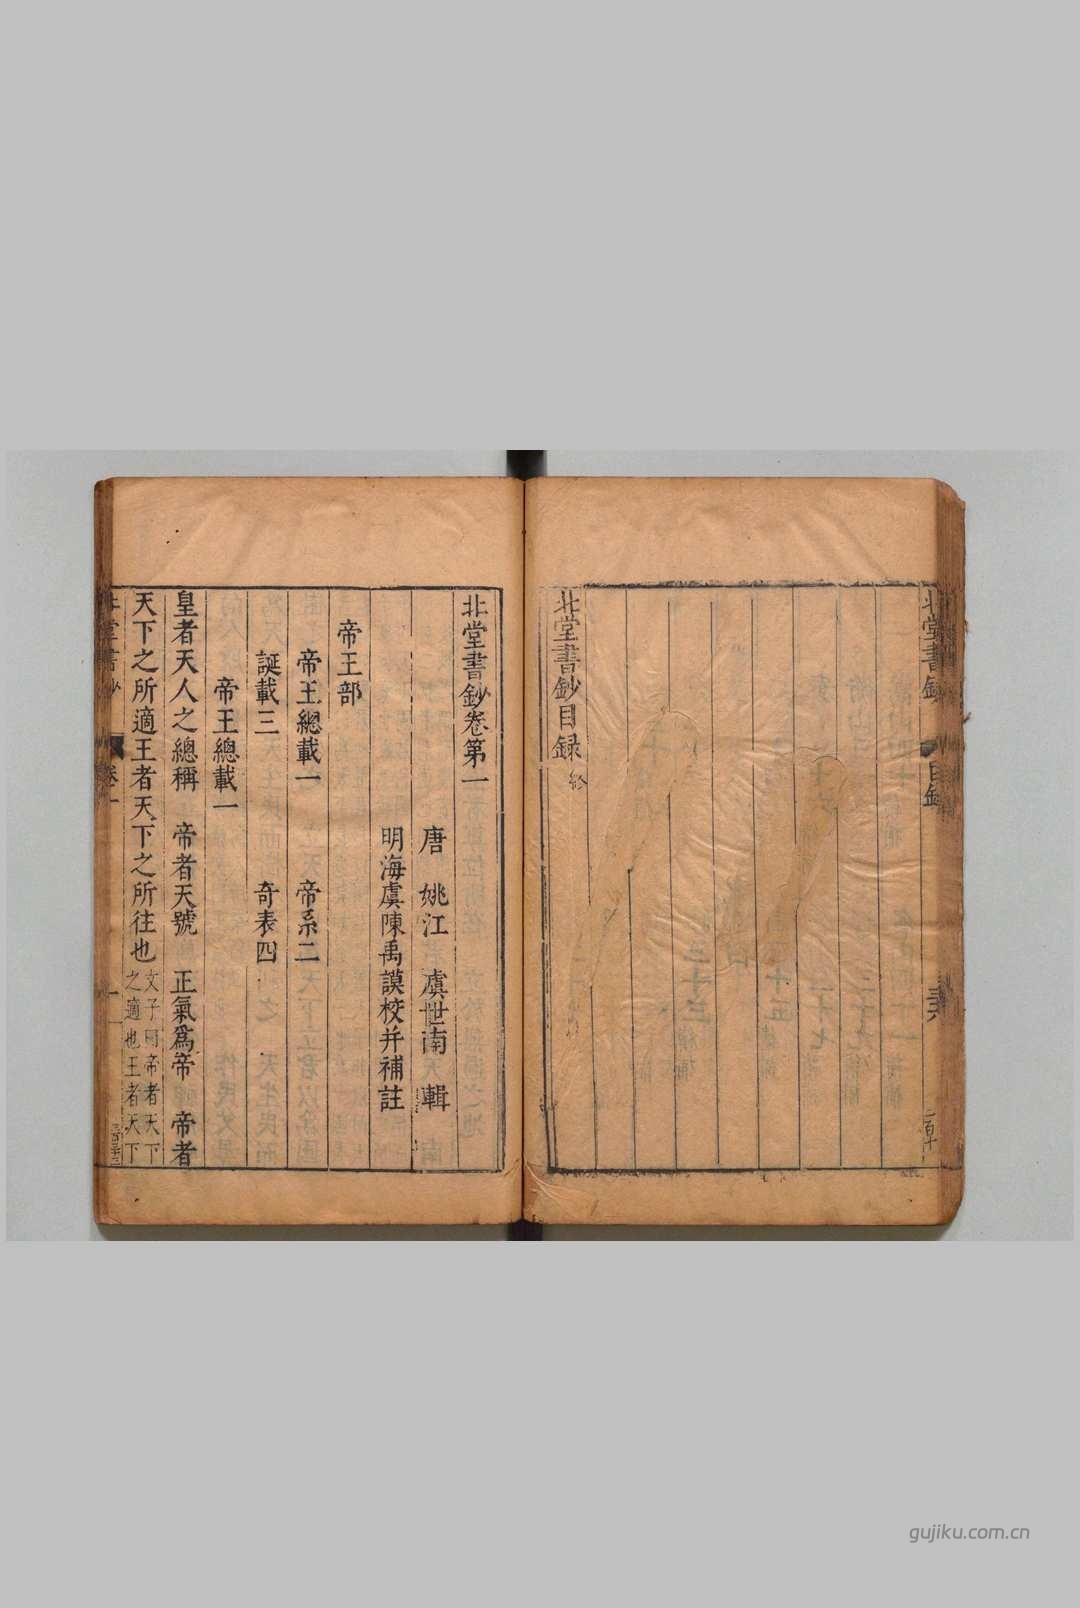 北堂書鈔目録
北堂書鈔目録終
北堂書鈔卷第一
唐 姚江 虞世南 輯
明海虞陳禹謨校并補註
帝王部
帝王總載一 帝系二
誕載三 奇表四
帝王總載一
皇者天人之總稱 帝者天號 正氣爲帝 帝者
天下之所適王者天下之所往也
文子曰帝者天下
之適也王者天下
北堂書鈔
卷一
gujiku.com.cn